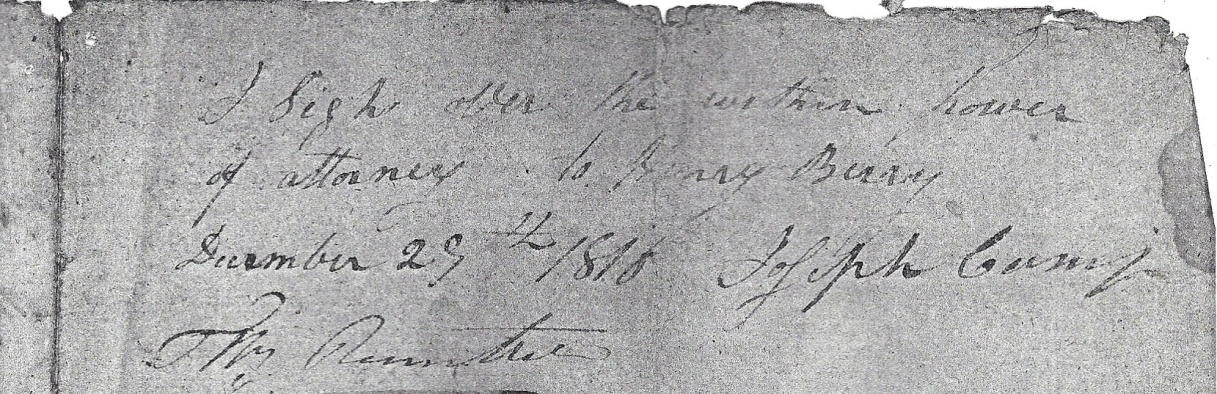 I Sigh over the within power
of attorney to Henry Berry
December 29th 1810 Joseph
Rountree